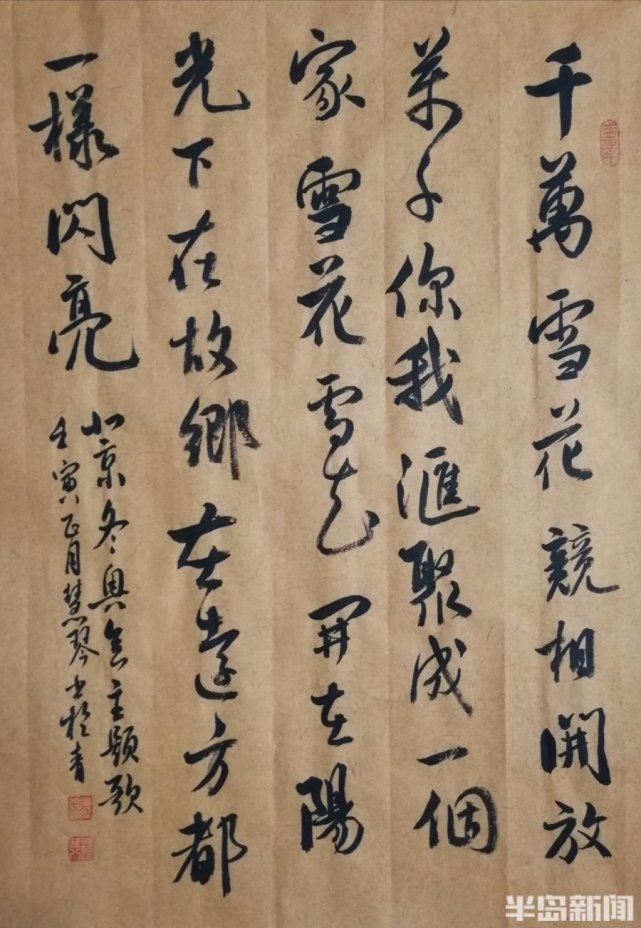 千萬雪花競相開放
萬千你我滙聚成一個
家雪花雪花開在陽
光下在故鄉在遠方都
一樣閃亮
北京冬奥會主題歌
壬寅正月慧琴書於青
半岛新闻